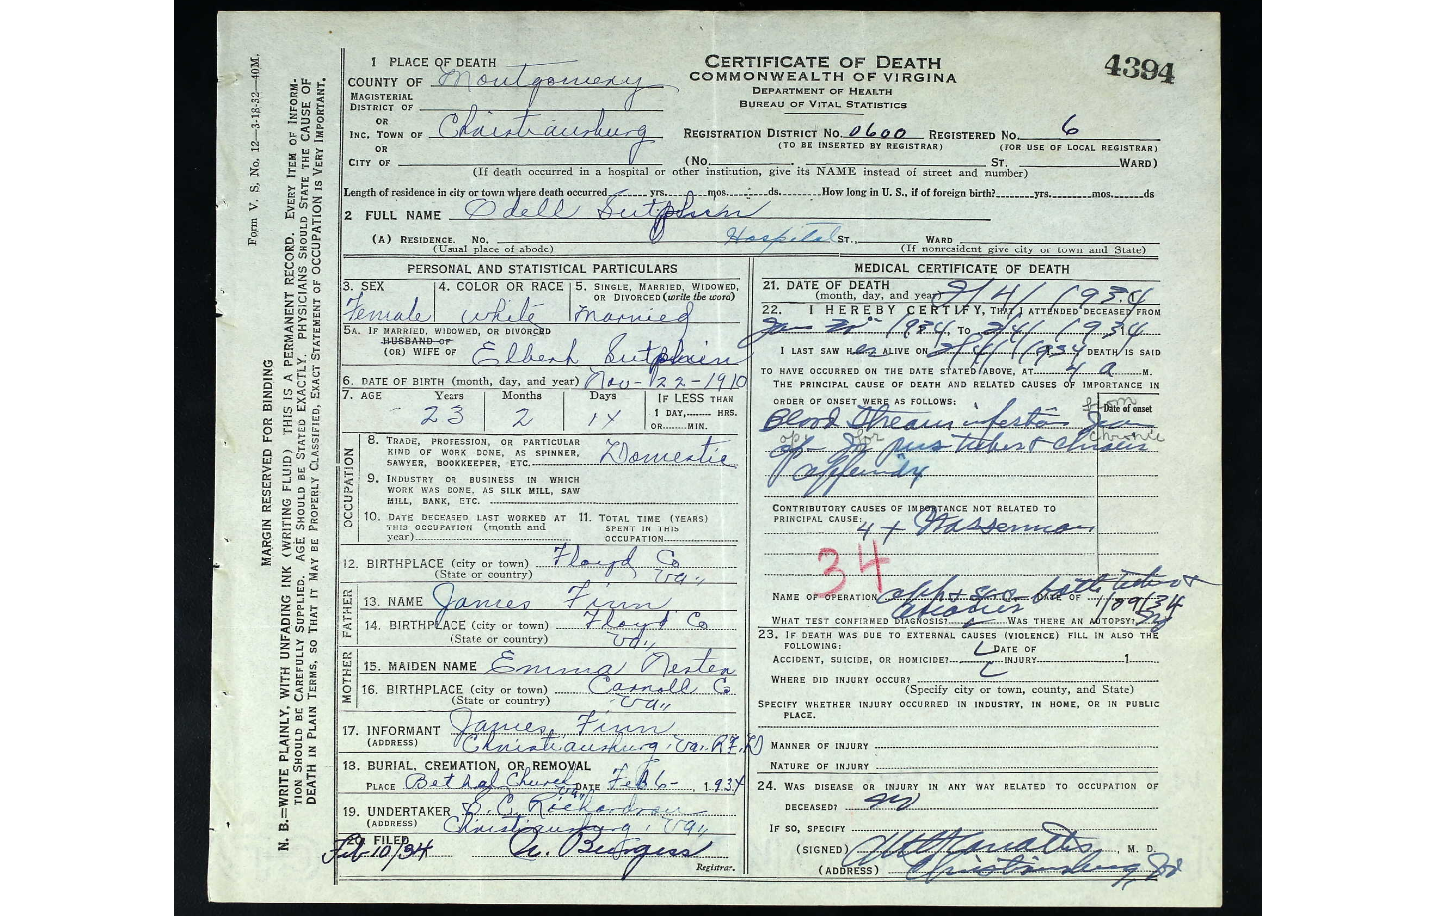 Form V. S. No. 12—3-18-32—40M.
MARGIN RESERVED FOR BINDING
N. B.—WRITE PLAINLY, WITH UNFADING INK (WRITING FLUID) THIS IS A PERMANENT RECORD. EVERY ITEM OF INFORM-
TION SHOULD BE CAREFULLY SUPPLIED. AGE SHOULD BE STATED EXACTLY. PHYSICIANS SHOULD STATE THE CAUSE OF
DEATH IN PLAIN TERMS, SO THAT IT MAY BE PROPERLY CLASSIFIED, EXACT STATEMENT OF OCCUPATION IS VERY IMPORTANT.
CERTIFICATE OF DEATH
COMMONWEALTH OF VIRGINIA
DEPARTMENT OF HEALTH
BUREAU OF VITAL STATISTICS
4394
1 PLACE OF DEATH
COUNTY OF Montgomery
MAGISTERIAL
DISTRICT OF
OR
INC. TOWN OF Christiansburg REGISTRATION DISTRICT NO. 0600 REGISTERED NO. 6
(TO BE INSERTED BY REGISTRAR) (FOR USE OF LOCAL REGISTRAR)
OR
CITY OF (No. St. WARD)
(If death occurred in a hospital or other institution, give its NAME instead of street and number)
Length of residence in city or town where death occurred yrs. mos. ds. How long in U. S., if of foreign birth? yrs. mos. ds
2 FULL NAME Odell Sutphin
(A) RESIDENCE. No. Hospital ST., WARD
(Usual place of abode) (If nonresident give city or town and State)
PERSONAL AND STATISTICAL PARTICULARS
3. SEX 4. COLOR OR RACE 5. SINGLE, MARRIED, WIDOWED,
OR DIVORCED (write the word)
Female white Married
5A. IF MARRIED, WIDOWED, OR DIVORCED
HUSBAND OF
(OR) WIFE OF Elbert Sutphin
6. DATE OF BIRTH (month, day, and year) Nov-22-1910
7. AGE Years Months Days IF LESS THAN
1 DAY, HRS.
OR MIN.
23 2
OCCUPATION
8. TRADE, PROFESSION, OR PARTICULAR
KIND OF WORK DONE, AS SPINNER,
SAWYER, BOOKKEEPER, ETC. Domestic
9. INDUSTRY OR BUSINESS IN WHICH
WORK WAS DONE, AS SILK MILL, SAW
MILL, BANK, ETC.
10. DATE DECEASED LAST WORKED AT
THIS OCCUPATION (month and
year)
11. TOTAL TIME (YEARS)
SPENT IN THIS
OCCUPATION
12. BIRTHPLACE (city or town) Floyd Co
(State or country) Va,,
FATHER
13. NAME James Finn
14. BIRTHPLACE (city or town) Floyd Co
(State or country) Va,,
MOTHER
15. MAIDEN NAME Emma
16. BIRTHPLACE (city or town) Carroll Co
(State or country) Va,,
17. INFORMANT James Finn
(ADDRESS) Christiansburg, Va. R.F.D
18. BURIAL, CREMATION, OR REMOVAL
PLACE Bethel Church Va,, DATE Feb 6-, 1934
19. UNDERTAKER Richardson
(ADDRESS) Christiansburg, Va,,
20. FILED
Feb 10/34 Burgess
Registrar.
MEDICAL CERTIFICATE OF DEATH
21. DATE OF DEATH
(month, day, and year) 2/4/1934
22. I HEREBY CERTIFY, THAT I ATTENDED DECEASED FROM
Jan 1934, TO 2/4/1934
I LAST SAW HER ALIVE ON 2/4/1934 DEATH IS SAID
TO HAVE OCCURRED ON THE DATE STATED ABOVE, AT 4 a M.
THE PRINCIPAL CAUSE OF DEATH AND RELATED CAUSES OF IMPORTANCE IN
ORDER OF ONSET WERE AS FOLLOWS: Date of onset
Blood Stream infection from
op for pus tubes & chronic
appendix
CONTRIBUTORY CAUSES OF IMPORTANCE NOT RELATED TO
PRINCIPAL CAUSE: 4 + Wasserman
34
NAME OF OPERATION both tubes & ovaries DATE OF
WHAT TEST CONFIRMED DIAGNOSIS? WAS THERE AN AUTOPSY?
23. IF DEATH WAS DUE TO EXTERNAL CAUSES (VIOLENCE) FILL IN ALSO THE
FOLLOWING:
ACCIDENT, SUICIDE, OR HOMICIDE? DATE OF INJURY 1
WHERE DID INJURY OCCUR?
(Specify city or town, county, and State)
SPECIFY WHETHER INJURY OCCURRED IN INDUSTRY, IN HOME, OR IN PUBLIC
PLACE.
MANNER OF INJURY
NATURE OF INJURY
24. WAS DISEASE OR INJURY IN ANY WAY RELATED TO OCCUPATION OF
DECEASED? no
IF SO, SPECIFY
(SIGNED) M. D.
(ADDRESS) Christiansburg, Va